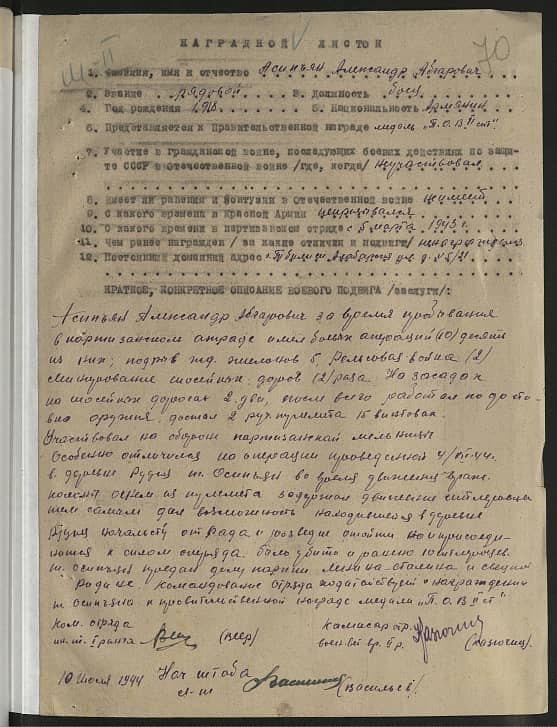 70
Ш-П
НАГРАДНОЙ ЛИСТОК
1. Фамилия, имя и отчество Асипьян Александр Абгарович
2. Звание рядовой 3. Должность боец
4. Год рождения 1918 5. Национальность Армянин
6. Представляется к Правительственной награде медаль "П.О.В. II ст".
7. Участие в Гражданской войне, последующих боевых действиях по защи-
те СССР в Отечественной войне /где, когда/ неучаствовал
8. Имеет ли ранения и контузии в Отечественной войне неимеет
9. С какого времени в Красной Армии
10. С какого времени в партизанском отряде с 5 марта 1943 г.
11. Чем ранее награжден /за какие отличия и подвиги/
12. Постоянный домашний адрес г. Тбилиси д. № 5/21
КРАТКОЕ, КОНКРЕТНОЕ ОПИСАНИЕ БОЕВОГО ПОДВИГА /заслуги/:
Асипьян Александр Абгарович за время пребывания
в партизанском отряде имел боевых операций (10) десять
из них: подрыв ж.д. эшелонов 5, Рельсовая война (2)
Минирование шосейных дорог (2) раза. На засадах
на шосейных дорогах 2 дня, после всего работал по доста-
вке оружия, достал 2 руч. пулемета 15 винтовок.
Участвовал на обороне партизанской мельницы
Особенно отличился на операции проведенной
в деревне Рудня т. Осипьян во время движения враж.
огнем из пулемета задержал движение гитлеровцев
тем самым дал возможность находившейся в деревне
Рудня начальству отряда и разведке отойти и присоеди-
нится к силам отряда. было убито и ранено гитлеровцев.
т. осипьян предан делу партии Ленина-Сталина и своей
Родине. Командование отряда ходатайствует о награждении
т. осипьяна к правительственной награде медали "П.О.В. II ст"
Ком. отряда
ин-т. I ранга (Веер)
Комисар отр.
воен. вр. II р.
10 июля 1944 Нач штаба
л-т (Васильев)